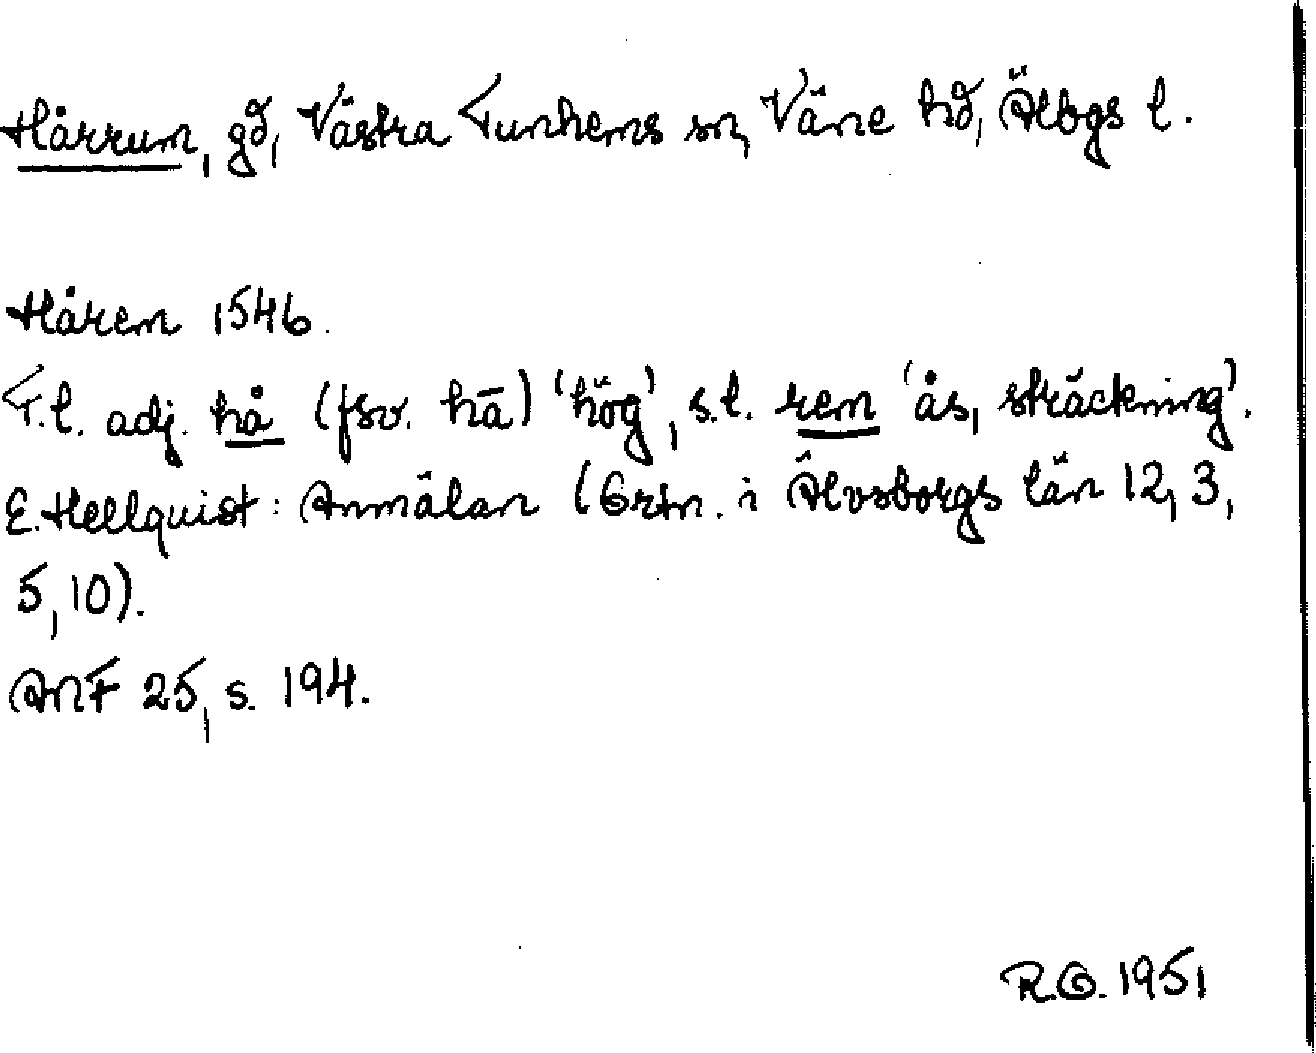 Hårrum, gd, Västra Tunhems sn, Väne hd, Älbgs l.
Hårem 1546.
F.l. adj. hå (fsv. hā) 'hög', s.l. rem 'ås, sträckning'.
E. Hellquist: Anmälan (Ortn. i Älvsborgs län 12, 3,
5, 10).
ANF 25, s. 194.
R.O. 1951